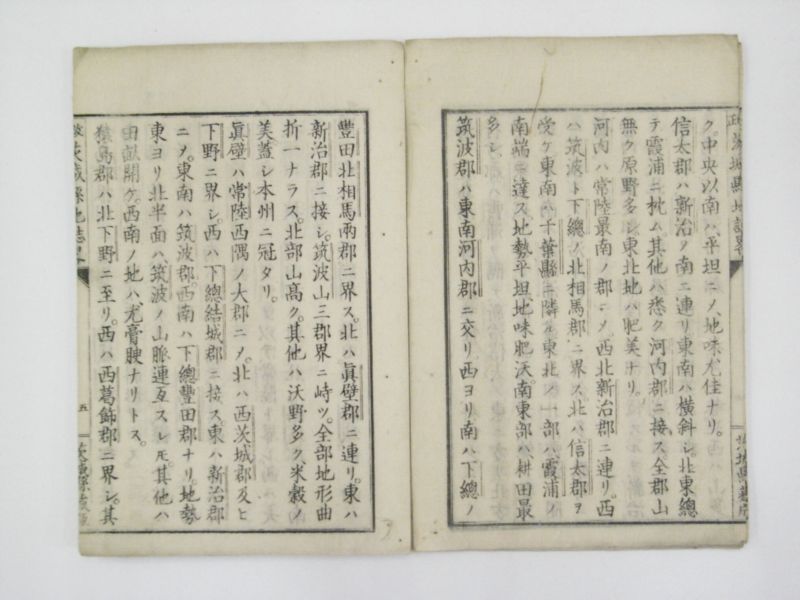 ク。中央以南ハ、平坦ニメ、地味尤佳ナリ。
信太郡ハ新治ノ南ニ連リ東南ハ横斜シ北東總
テ霞浦ニ枕ム其他ハ悉ク河内郡ニ接ス全郡山
無ク原野多シ東北地ハ肥美ナリ。
河内ハ常陸最南ノ郡ニメ西北新治郡ニ連リ。西
ハ筑波ト下總ノ北相馬郡ニ界ス北ハ信太郡ヲ
受ケ東南ハ千葉縣ニ隣ル東北ノ一部ハ霞浦ノ
南端ニ達ス地勢平坦地味肥沃。南東部ハ耕田最
多シ
筑波郡ハ東南河内郡ニ交リ西ヨリ南ハ下總ノ
豐田北相馬兩郡ニ界ス。北ハ眞壁郡ニ連リ。東ハ
新治郡ニ接シ。筑波山三郡界ニ峙ツ。全部地形曲
折一ナラス。北部山高ク。其他ハ沃野多ク。米穀ノ
美蓋シ本州ニ冠タリ。
眞壁ハ常陸西隅ノ大郡ニメ。北ハ西茨城郡及ヒ
下野ニ界シ。西ハ下總結城郡ニ接ス東ハ新治郡
ニメ。東南ハ筑波郡。西南ハ下總豐田郡ナリ。地勢
東ヨリ北半面ハ、筑波ノ山脈連亙スレ𪜈。其他ハ
田畝開ケ。西南ノ地ハ尤膏腴ナリトス。
猿島郡ハ北下野ニ至リ。西ハ西葛飾郡ニ界シ。其
五